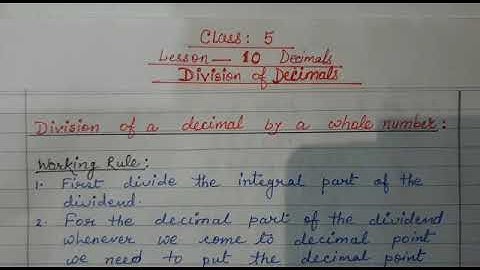 Class: 5
Lesson — 10 Decimals
Division of Decimals
Division of a decimal by a whole number:
Working Rule:
1. First divide the integral part of the
dividend.
2. For the decimal part of the dividend
whenever we come to decimal point
we need to put the decimal point